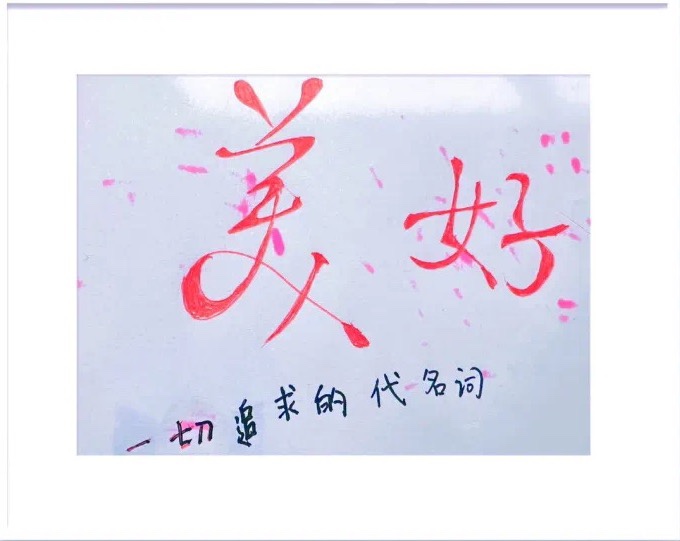 美好
一切追求的代名词